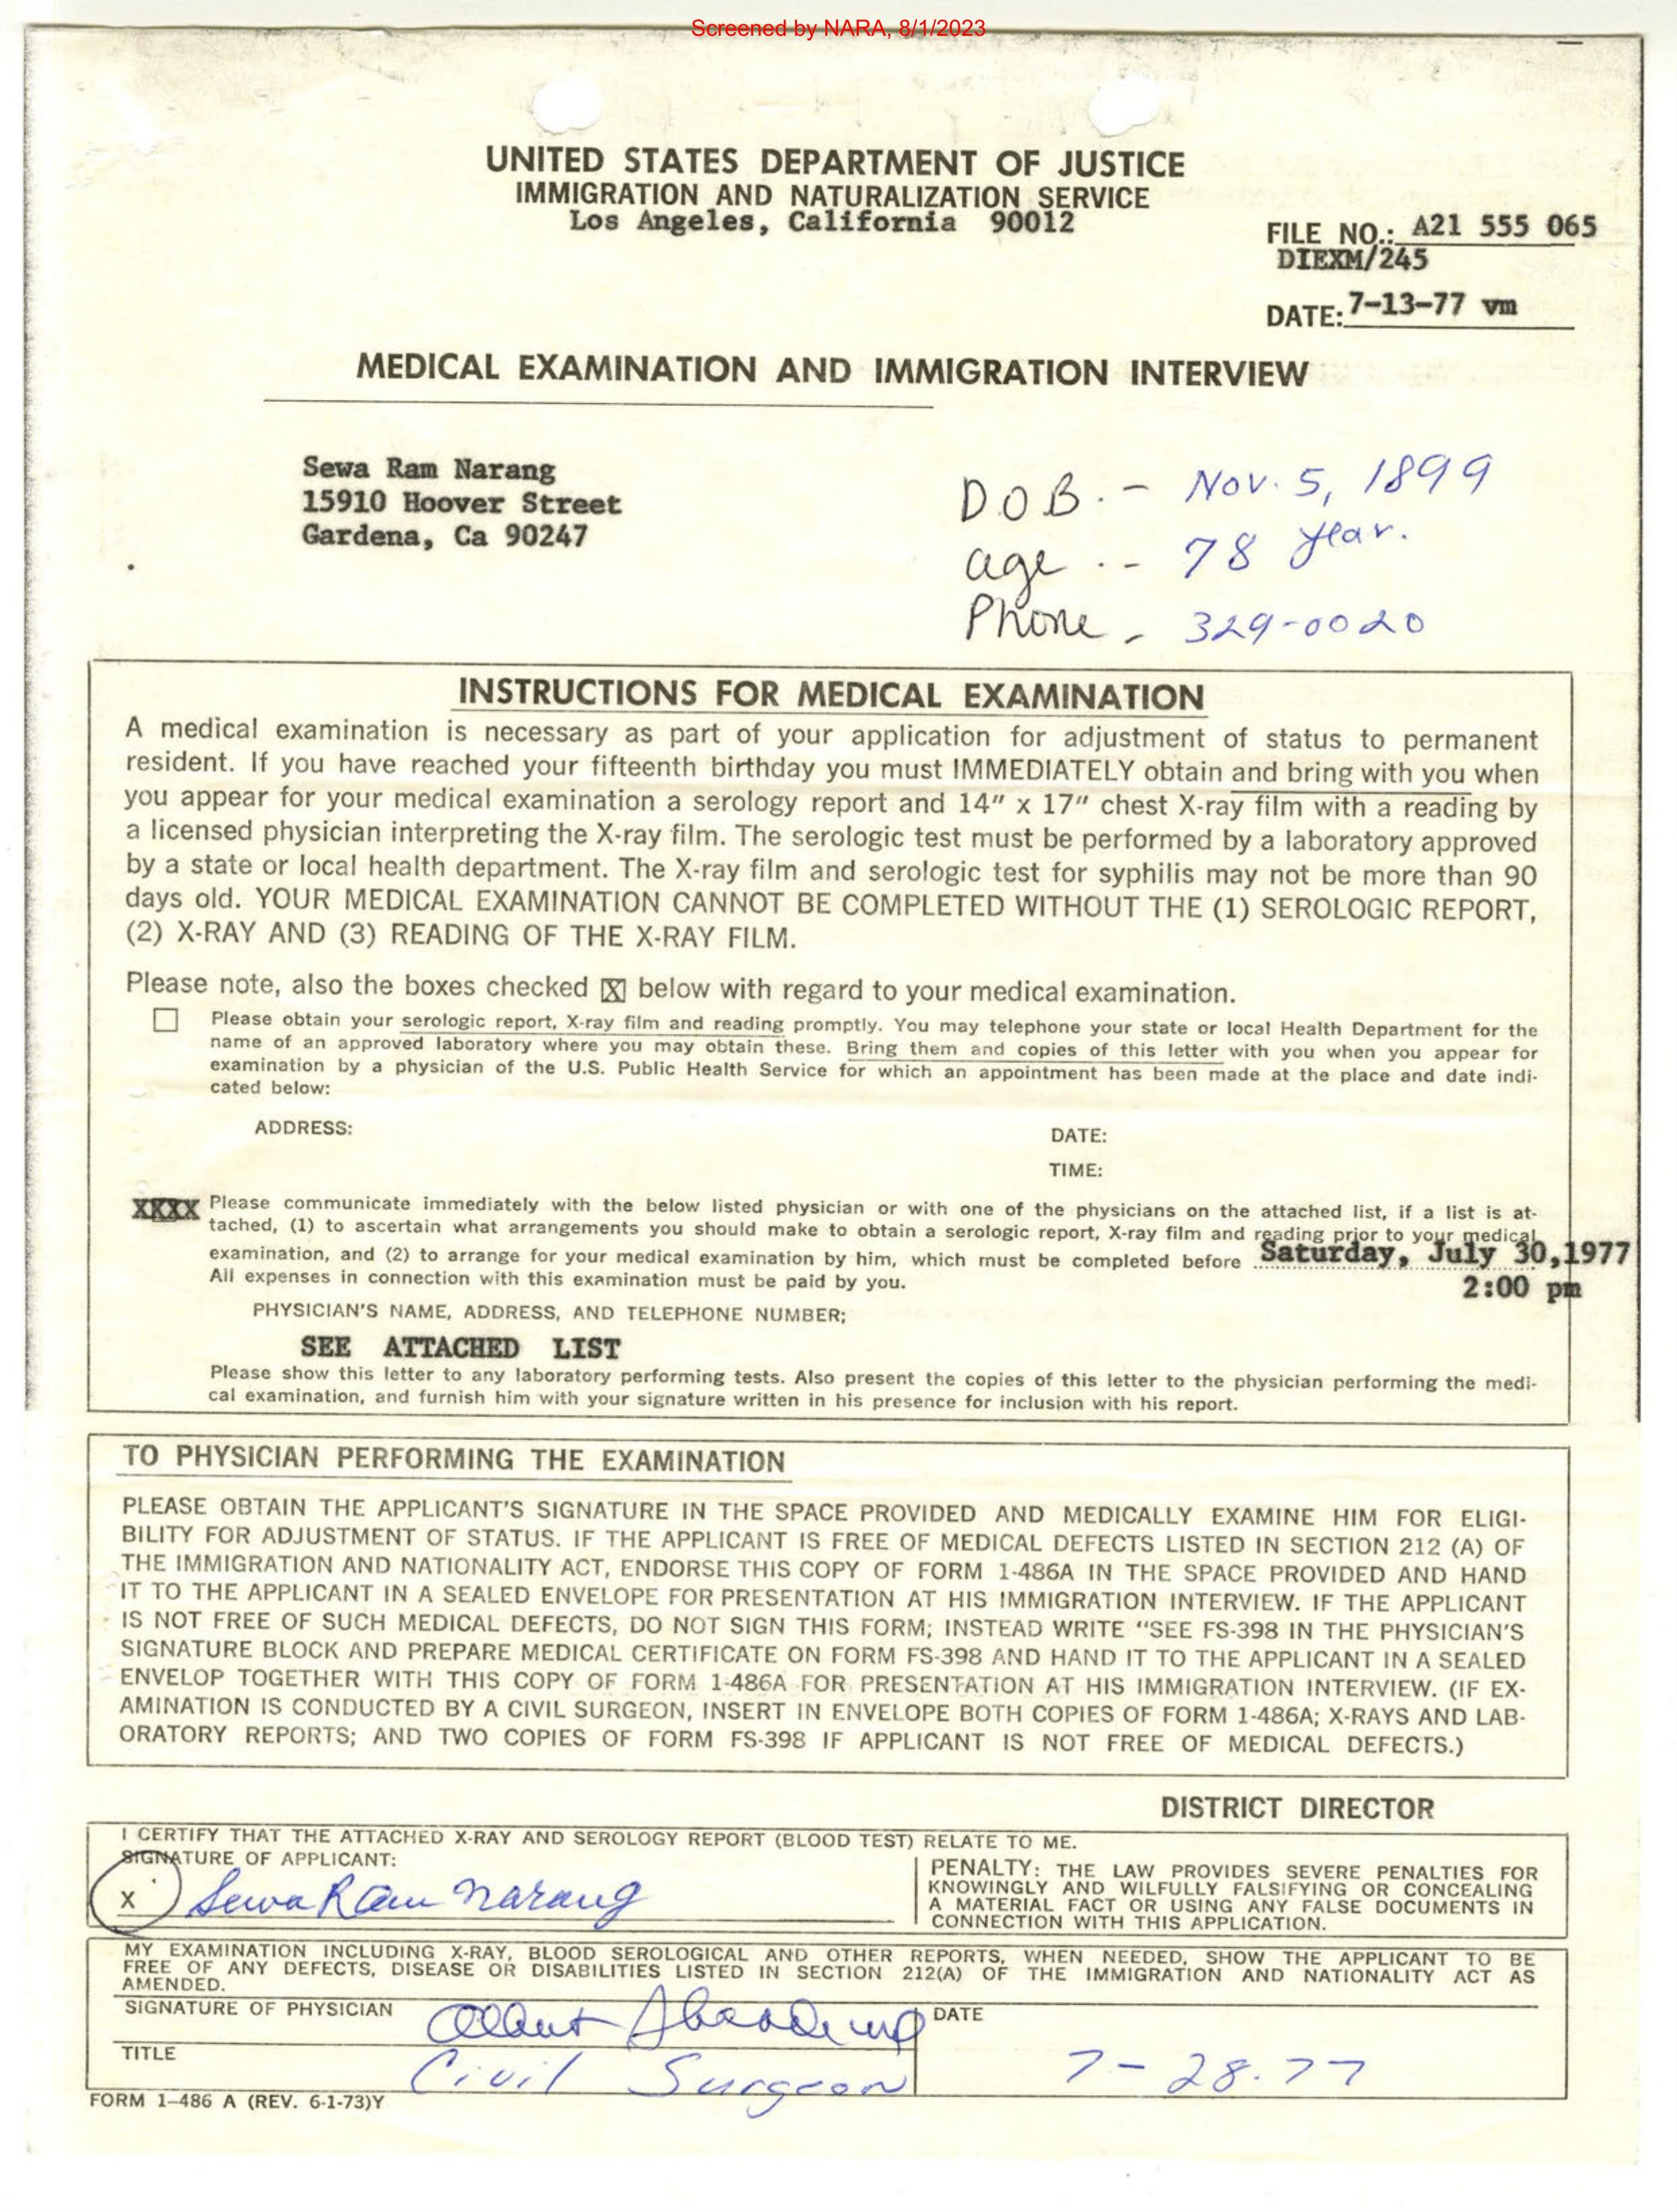 Screened by NARA, 8/1/2023
UNITED STATES DEPARTMENT OF JUSTICE
IMMIGRATION AND NATURALIZATION SERVICE
Los Angeles, California 90012
FILE NO.: A21 555 065
DIEXM/245
DATE: 7-13-77 vm
MEDICAL EXAMINATION AND IMMIGRATION INTERVIEW
Sewa Ram Narang
15910 Hoover Street
Gardena, Ca 90247
DOB. - Nov. 5, 1899
age .- 78 year.
Phone - 329-0020
INSTRUCTIONS FOR MEDICAL EXAMINATION
A medical examination is necessary as part of your application for adjustment of status to permanent
resident. If you have reached your fifteenth birthday you must IMMEDIATELY obtain and bring with you when
you appear for your medical examination a serology report and 14" x 17" chest X-ray film with a reading by
a licensed physician interpreting the X-ray film. The serologic test must be performed by a laboratory approved
by a state or local health department. The X-ray film and serologic test for syphilis may not be more than 90
days old. YOUR MEDICAL EXAMINATION CANNOT BE COMPLETED WITHOUT THE (1) SEROLOGIC REPORT,
(2) X-RAY AND (3) READING OF THE X-RAY FILM.
Please note, also the boxes checked X below with regard to your medical examination.
Please obtain your serologic report, X-ray film and reading promptly. You may telephone your state or local Health Department for the
name of an approved laboratory where you may obtain these. Bring them and copies of this letter with you when you appear for
examination by a physician of the U.S. Public Health Service for which an appointment has been made at the place and date indi-
cated below:
ADDRESS:
DATE:
TIME:
XXXX Please communicate immediately with the below listed physician or with one of the physicians on the attached list, if a list is at-
tached, (1) to ascertain what arrangements you should make to obtain a serologic report, X-ray film and reading prior to your medical
examination, and (2) to arrange for your medical examination by him, which must be completed before Saturday, July 30,1977
All expenses in connection with this examination must be paid by you. 2:00 pm
PHYSICIAN'S NAME, ADDRESS, AND TELEPHONE NUMBER;
SEE ATTACHED LIST
Please show this letter to any laboratory performing tests. Also present the copies of this letter to the physician performing the medi-
cal examination, and furnish him with your signature written in his presence for inclusion with his report.
TO PHYSICIAN PERFORMING THE EXAMINATION
PLEASE OBTAIN THE APPLICANT'S SIGNATURE IN THE SPACE PROVIDED AND MEDICALLY EXAMINE HIM FOR ELIGI-
BILITY FOR ADJUSTMENT OF STATUS. IF THE APPLICANT IS FREE OF MEDICAL DEFECTS LISTED IN SECTION 212 (A) OF
THE IMMIGRATION AND NATIONALITY ACT, ENDORSE THIS COPY OF FORM 1-486A IN THE SPACE PROVIDED AND HAND
IT TO THE APPLICANT IN A SEALED ENVELOPE FOR PRESENTATION AT HIS IMMIGRATION INTERVIEW. IF THE APPLICANT
IS NOT FREE OF SUCH MEDICAL DEFECTS, DO NOT SIGN THIS FORM; INSTEAD WRITE "SEE FS-398 IN THE PHYSICIAN'S
SIGNATURE BLOCK AND PREPARE MEDICAL CERTIFICATE ON FORM FS-398 AND HAND IT TO THE APPLICANT IN A SEALED
ENVELOP TOGETHER WITH THIS COPY OF FORM 1-486A FOR PRESENTATION AT HIS IMMIGRATION INTERVIEW. (IF EX-
AMINATION IS CONDUCTED BY A CIVIL SURGEON, INSERT IN ENVELOPE BOTH COPIES OF FORM 1-486A; X-RAYS AND LAB-
ORATORY REPORTS; AND TWO COPIES OF FORM FS-398 IF APPLICANT IS NOT FREE OF MEDICAL DEFECTS.)
DISTRICT DIRECTOR
I CERTIFY THAT THE ATTACHED X-RAY AND SEROLOGY REPORT (BLOOD TEST) RELATE TO ME.
SIGNATURE OF APPLICANT:
X Sewa Ram Narang
PENALTY: THE LAW PROVIDES SEVERE PENALTIES FOR
KNOWINGLY AND WILFULLY FALSIFYING OR CONCEALING
A MATERIAL FACT OR USING ANY FALSE DOCUMENTS IN
CONNECTION WITH THIS APPLICATION.
MY EXAMINATION INCLUDING X-RAY, BLOOD SEROLOGICAL AND OTHER REPORTS, WHEN NEEDED, SHOW THE APPLICANT TO BE
FREE OF ANY DEFECTS, DISEASE OR DISABILITIES LISTED IN SECTION 212(A) OF THE IMMIGRATION AND NATIONALITY ACT AS
AMENDED.
SIGNATURE OF PHYSICIAN Albert
DATE
TITLE Civil Surgeon
7-28.77
FORM 1-486 A (REV. 6-1-73)Y